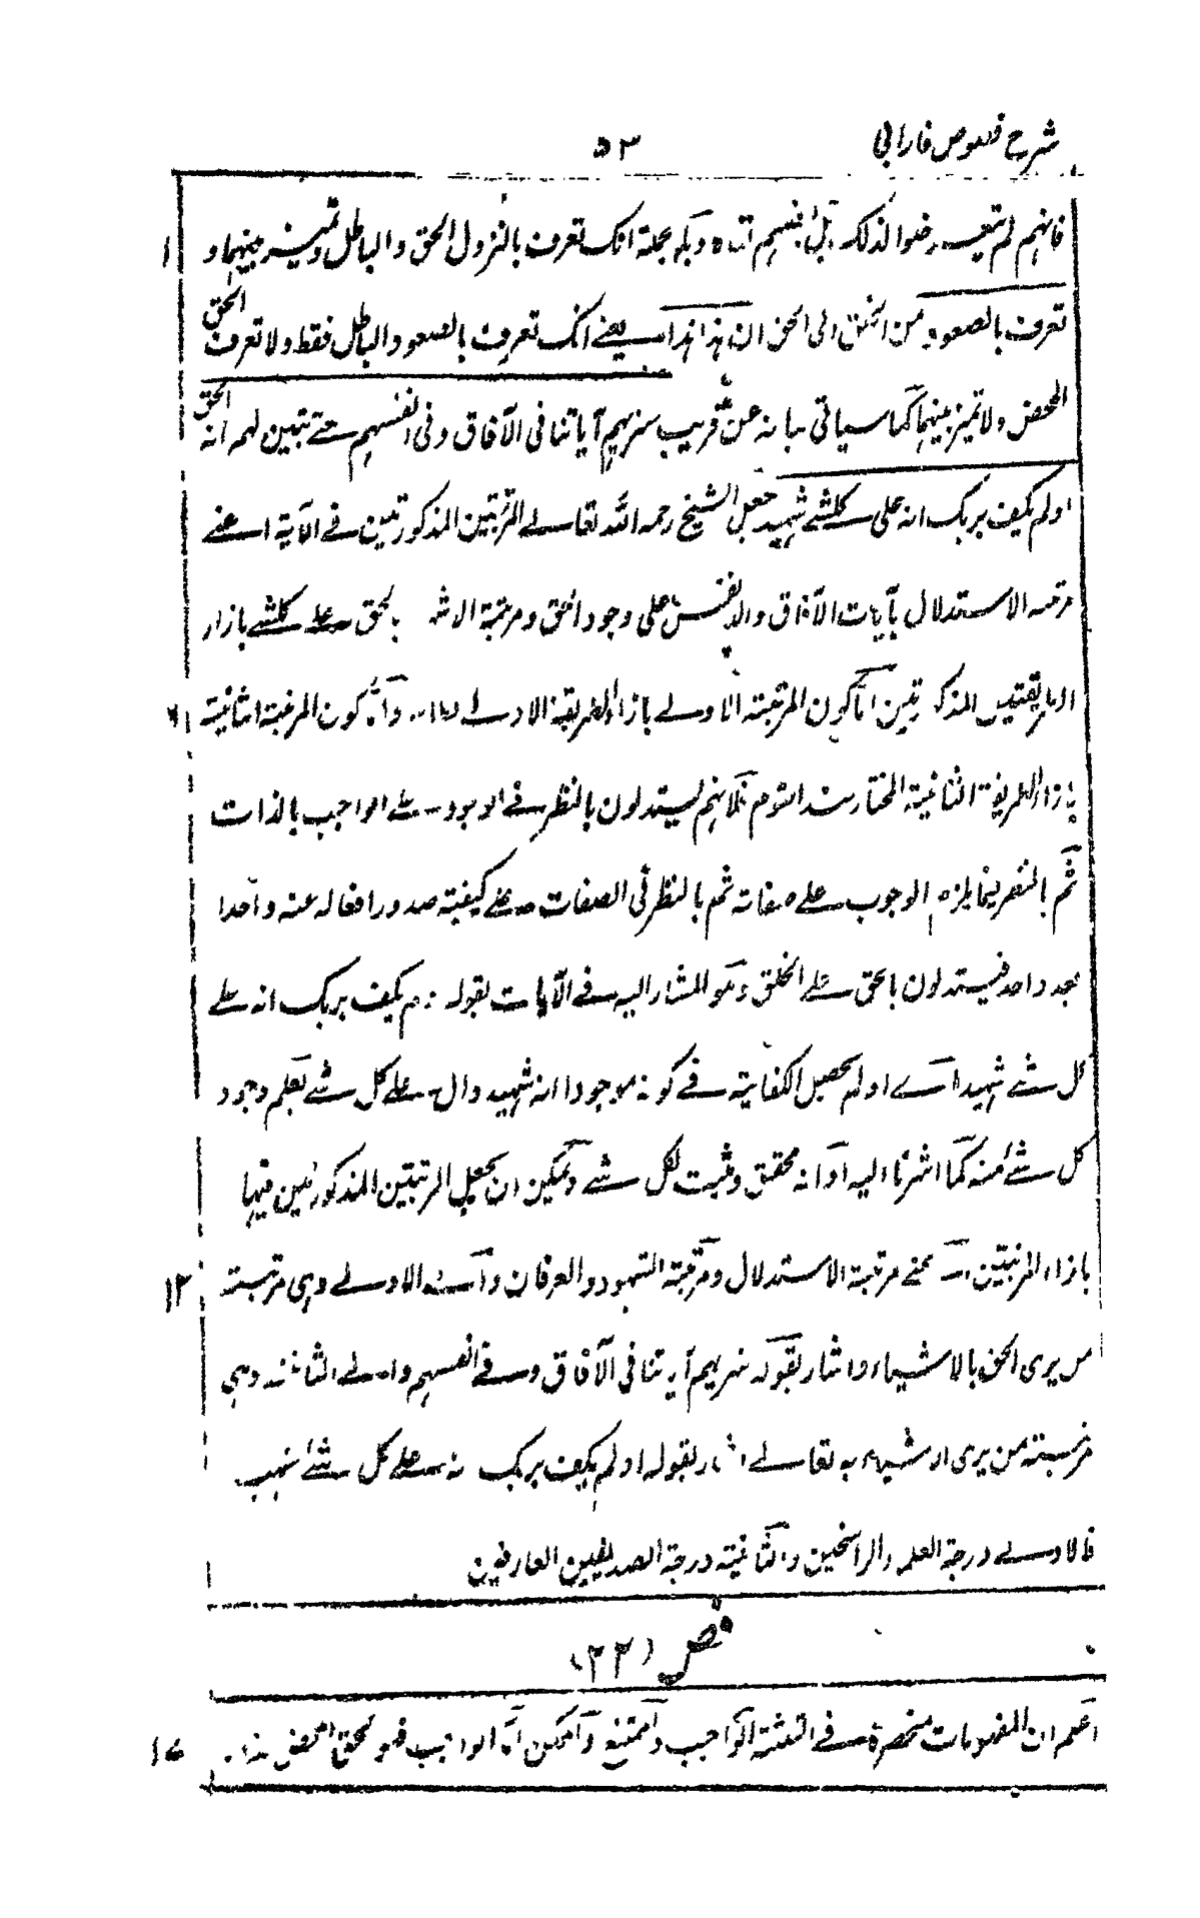 شرح فصوص فارابی
۵۳
فانهم لم يتعرضوا لذلك بل نفيهم اثناه وبالجملة انك تعرف بالنزول الحق والباطل وتميز بينهما و
تعرف بالصعود من الخلق الى الحق ان هذا هذا يعنے انك تعرف بالصعود الباطل فقط ولا تعرف الحق
المحض ولا تميز بينهما كما سياتى بيانه عن قريب سنريهم آياتنا فى الآفاق وفى انفسهم حتے تتبين لهم انه الحق
اولم يكف بربك انه على كلشے شهيد جعل الشيخ رحمه الله تعالے المرتبتين المذكورتين فے الآية اعنے
مرتبة الاستدلال بآيات الآفاق والانفس على وجود الحق ومرتبة بالحق علے كلشے بازاء
الطريقتين المذكورتين اما كون المرتبة الاولے بازاء الطريقة الاولے واما كون المرتبة الثانية
بازاء الطريقة الثانية المختارة القوم فلانهم ليستدلون بالنظر فے الوجود علے الواجب بالذات
ثم بالنظر فيما يلزم الوجوب علے صفاته ثم بالنظر فى الصفات علے كيفية صدور افعاله عنه واحدا
بعد واحد فيستدلون بالحق علے الخلق وهو المشار اليه فے الآيات بقوله اولم يكف بربك انه علے
كل شے شهيد اے اولم يحصل الكفاية فے كونه موجودا انه شهيد دال علے كل شے يعلم وجود
كل شے منه كما اشرنا اليه او انه محقق ومثبت لكل شے ويمكن ان يجعل المرتبتين المذكورتين فيها
بازاء المرتبتين اعنے مرتبة الاستدلال ومرتبة الشهود والعرفان واے الاولے وهى مرتبة
من يرى الحق بالاشياء واشار بقوله سنريهم آياتنا فى الآفاق وفے انفسهم والے الثانية وهى
مرتبة من يرى الاشياء به تعالے اشار بقوله اولم يكف بربك انه علے كل شے شهيد
فالاولے درجة العلماء الراسخين والثانية درجة الصديقين العارفين
فص (۲۲)
اعلم ان المفهومات منحصرة فے الثلثة الواجب والممتنع والممكن اما الواجب فهو الحق المحض هذا